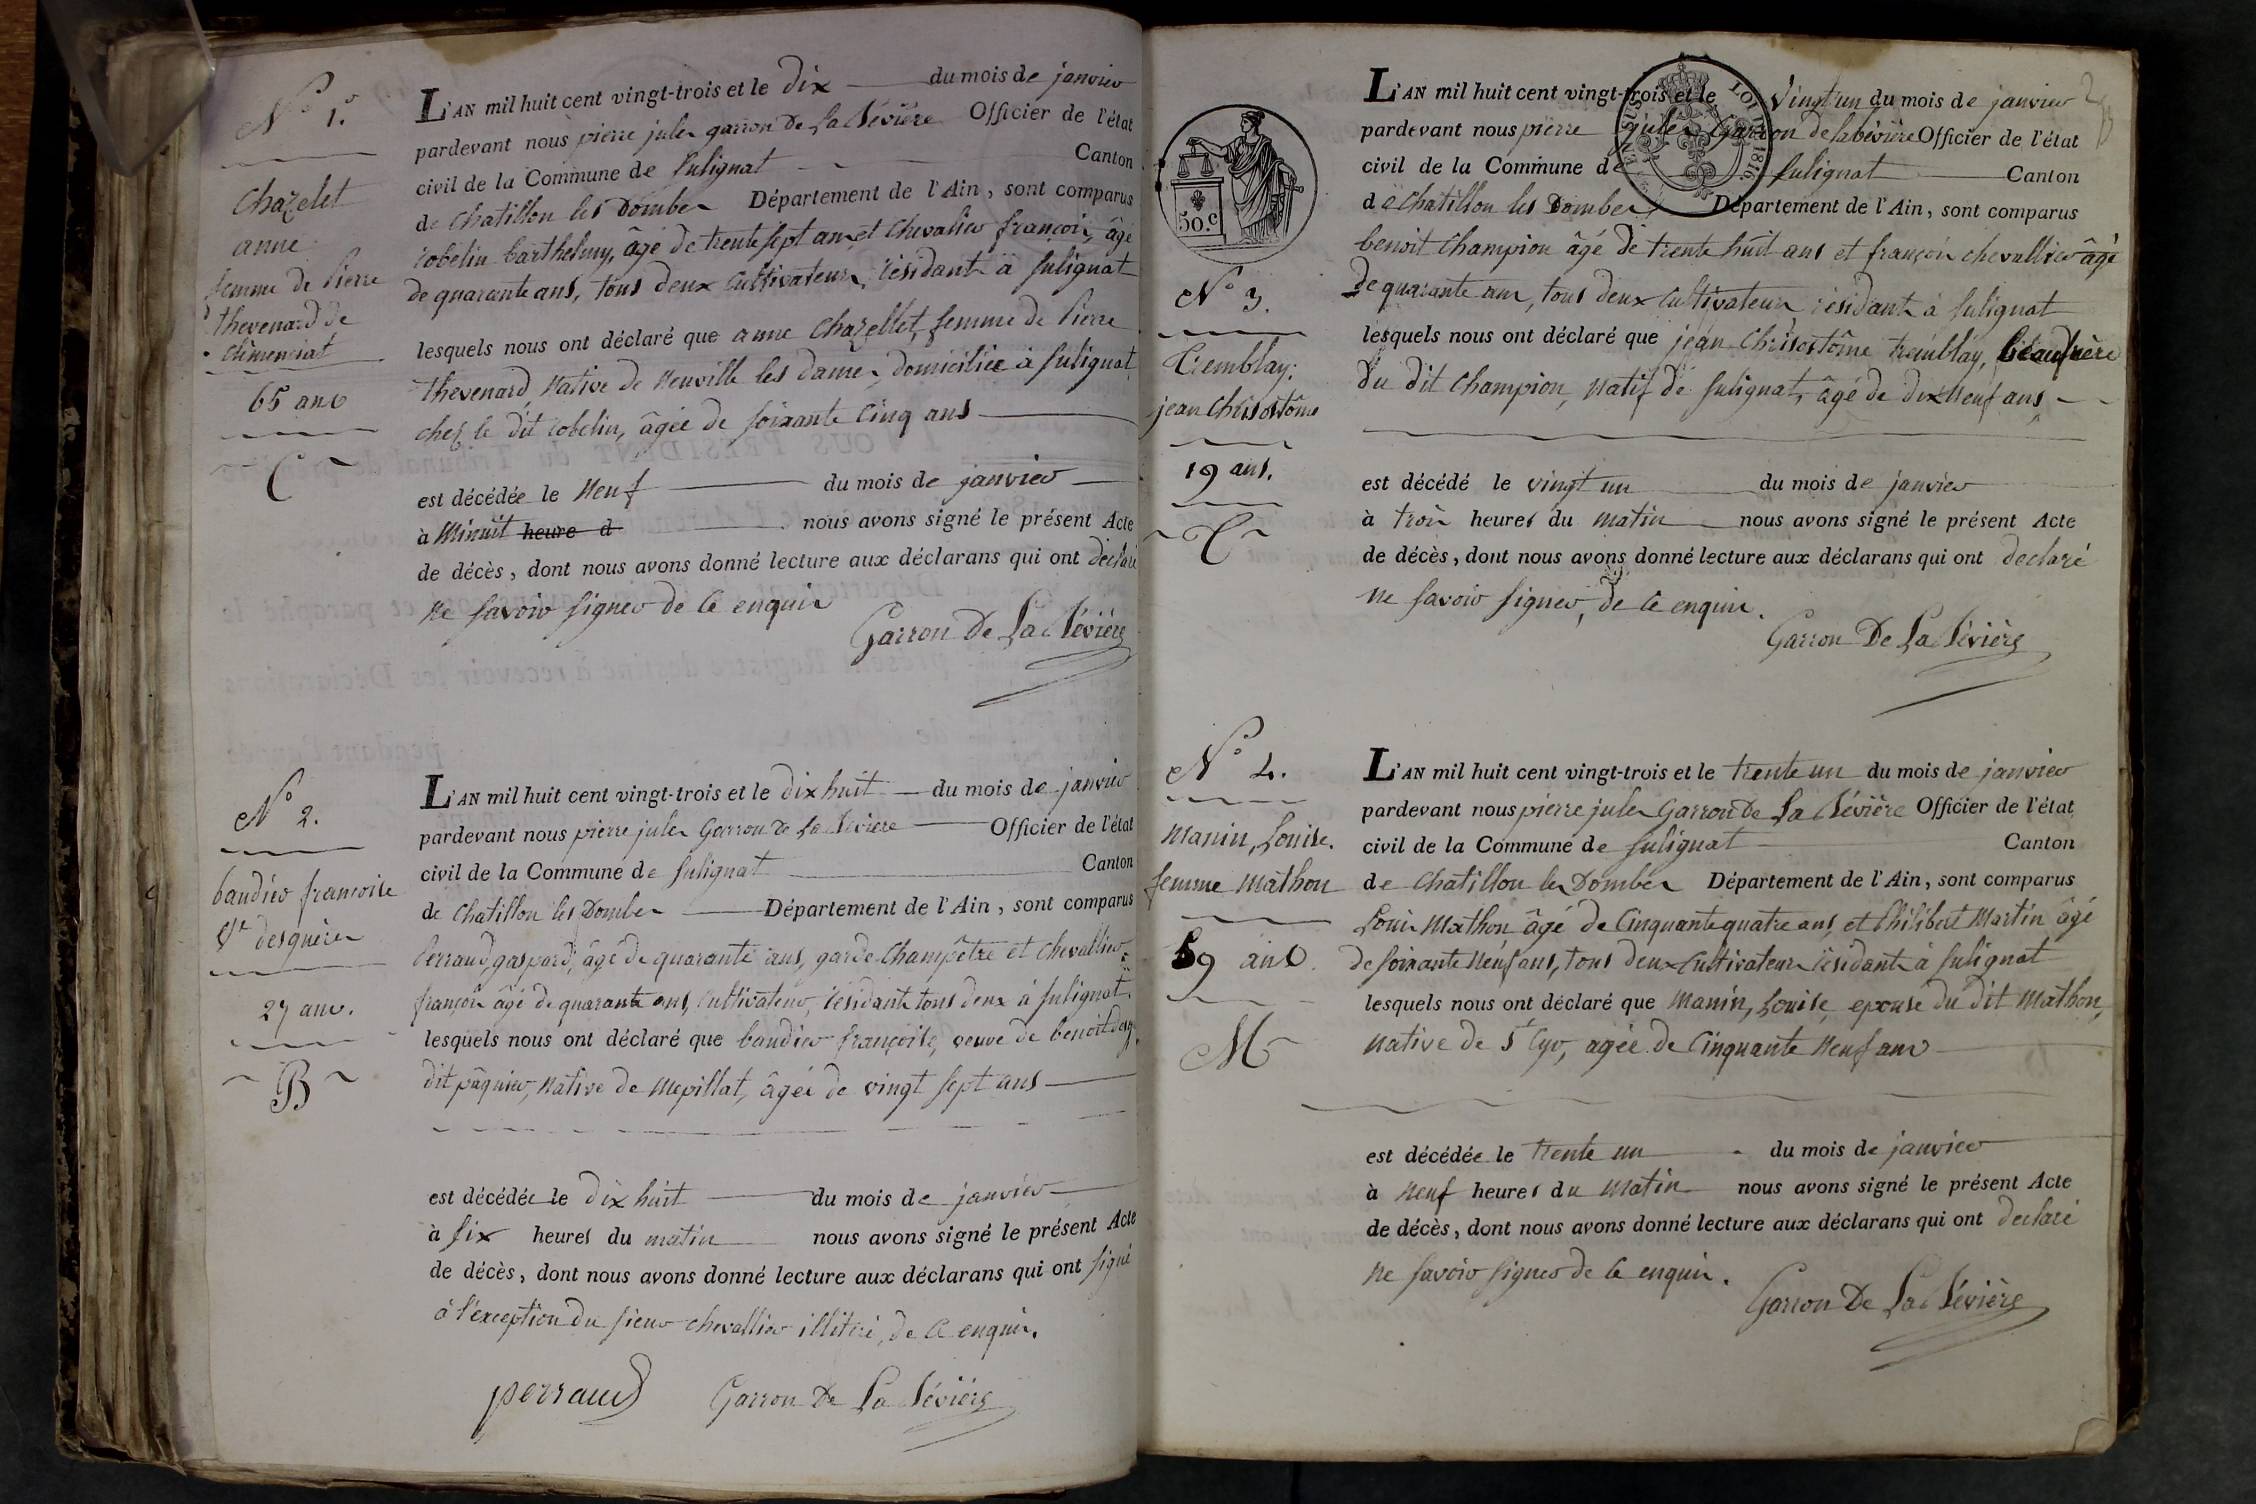 N° 1.°
Chazelet
anne
femme de Pierre
thevenard de
Climenciat
65 ans
C
L'AN mil huit cent vingt-trois et le dix du mois de janvier
pardevant nous pierre jules garron de La Bévière Officier de l'état
civil de la Commune de Sulignat Canton
de Chatillon les Dombes Département de l'Ain, sont comparus
Cobelin barthelmy, âgé de trente sept ans et Chevalier françois, âgé
de quarante ans, tous deux Cultivateurs, résidants à Sulignat
lesquels nous ont déclaré que anne Chazellet, femme de Pierre
thevenard Native de Neuville les dames, domiciliée à Sulignat
chez le dit Cobelin, âgée de soixante Cinq ans
est décédée le Neuf du mois de janvier
à Minuit heure d nous avons signé le présent Acte
de décès, dont nous avons donné lecture aux déclarans qui ont déclaré
Ne savoir signer de Ce enquis
Garron De La Bévière
N° 2.
baudier francoise
Ve desquères
27 ans.
B
L'AN mil huit cent vingt-trois et le dix huit du mois de janvier
pardevant nous pierre jules Garron de La Bévière Officier de l'état
civil de la Commune de Sulignat Canton
de Chatillon les Dombes Département de l'Ain, sont comparus
Perraud, gaspard, âgé de quarante ans, garde Champêtre et Chevallier
françois âgé de quarante ans, Cultivateur, résidants tous deux à Sulignat.
lesquels nous ont déclaré que baudier françoise, veuve de benoit desq.
dit pâquier, native de Mepillat, âgée de vingt sept ans
est décédée le dix huit du mois de janvier
à six heures du matin nous avons signé le présent Acte
de décès, dont nous avons donné lecture aux déclarans qui ont signé
à l'exception du sieur chevallier illitéré, de Ce enquis.
perraud Garron De La Bévière
2
50.c
EN SUS LOI DE 1816.
N° 3.
Tremblay.
jean Chrisostôme
19 ans.
T
L'AN mil huit cent vingt-trois et le Vingt un du mois de janvier
pardevant nous pierre jules Garron de la bévière Officier de l'état
civil de la Commune de Sulignat Canton
de Chatillon les Dombes Département de l'Ain, sont comparus
benoit Champion âgé de trente huit ans et françois chevallier âgé
de quarante ans, tous deux Cultivateurs résidants à Sulignat
lesquels nous ont déclaré que jean Chrisostôme tremblay, beaufrère
du dit Champion, Natif de Sulignat, âgé de dix Neuf ans
est décédé le vingt un du mois de janvier
à trois heures du matin nous avons signé le présent Acte
de décès, dont nous avons donné lecture aux déclarans qui ont declaré
Ne savoir signer, de Ce enquis.
Garron De La Bévière
N° 4.
Manin, Louise.
femme Mathon
59 ans.
M
L'AN mil huit cent vingt-trois et le trente un du mois de janvier
pardevant nous pierre jules Garron De La Bévière Officier de l'état
civil de la Commune de Sulignat Canton
de Chatillon les Dombes Département de l'Ain, sont comparus
Louis Mathon âgé de Cinquante quatre ans, et Philibert Martin âgé
de soixante Neuf ans, tous deux Cultivateurs résidants à Sulignat
lesquels nous ont déclaré que Manin, Louise, epouse du dit Mathon,
Native de St Cyr, agée de Cinquante Neuf ans
est décédée le trente un du mois de janvier
à Neuf heures du Matin nous avons signé le présent Acte
de décès, dont nous avons donné lecture aux déclarans qui ont declaré
Ne savoir signer de Ce enquis.
Garron De La Bévière